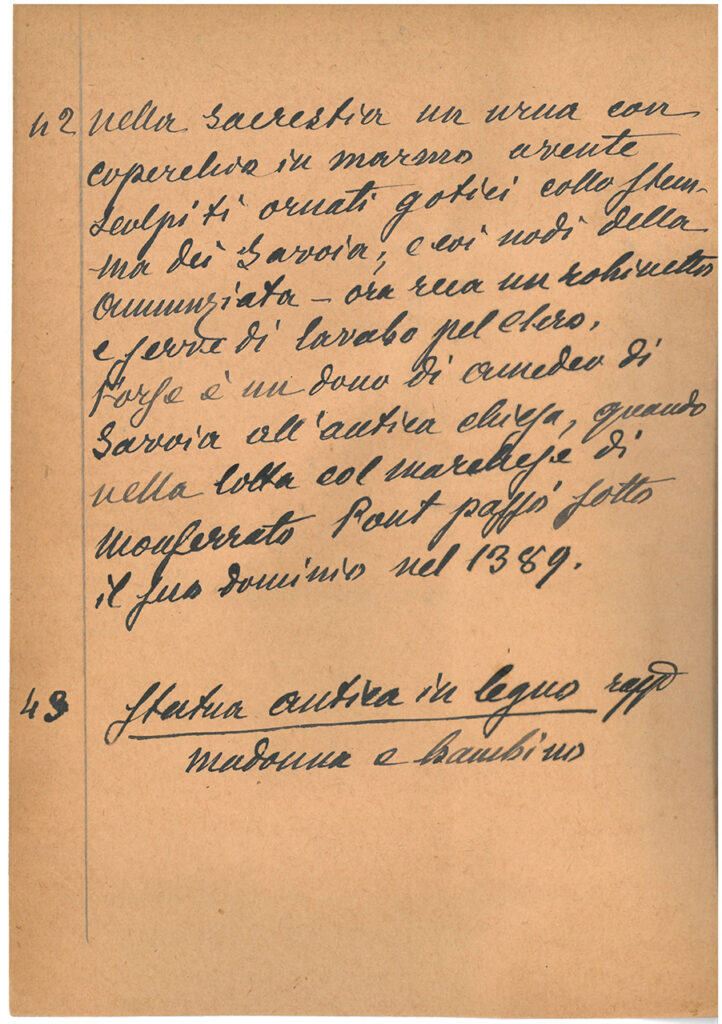 42 nella Sacrestia un urna con
coperchio in marmo avente
scolpiti ornati gotici collo stem-
ma dei Savoia, e coi nodi della
Annunziata - ora reca un robinetto
e serve di lavabo pel Clero.
Forse è un dono di Amedeo di
Savoia all'antica chiesa, quando
nella lotta col marchese di
Monferrato Pont passò sotto
il suo dominio nel 1389.
43 Statua antica in legno rappd
madonna e bambino